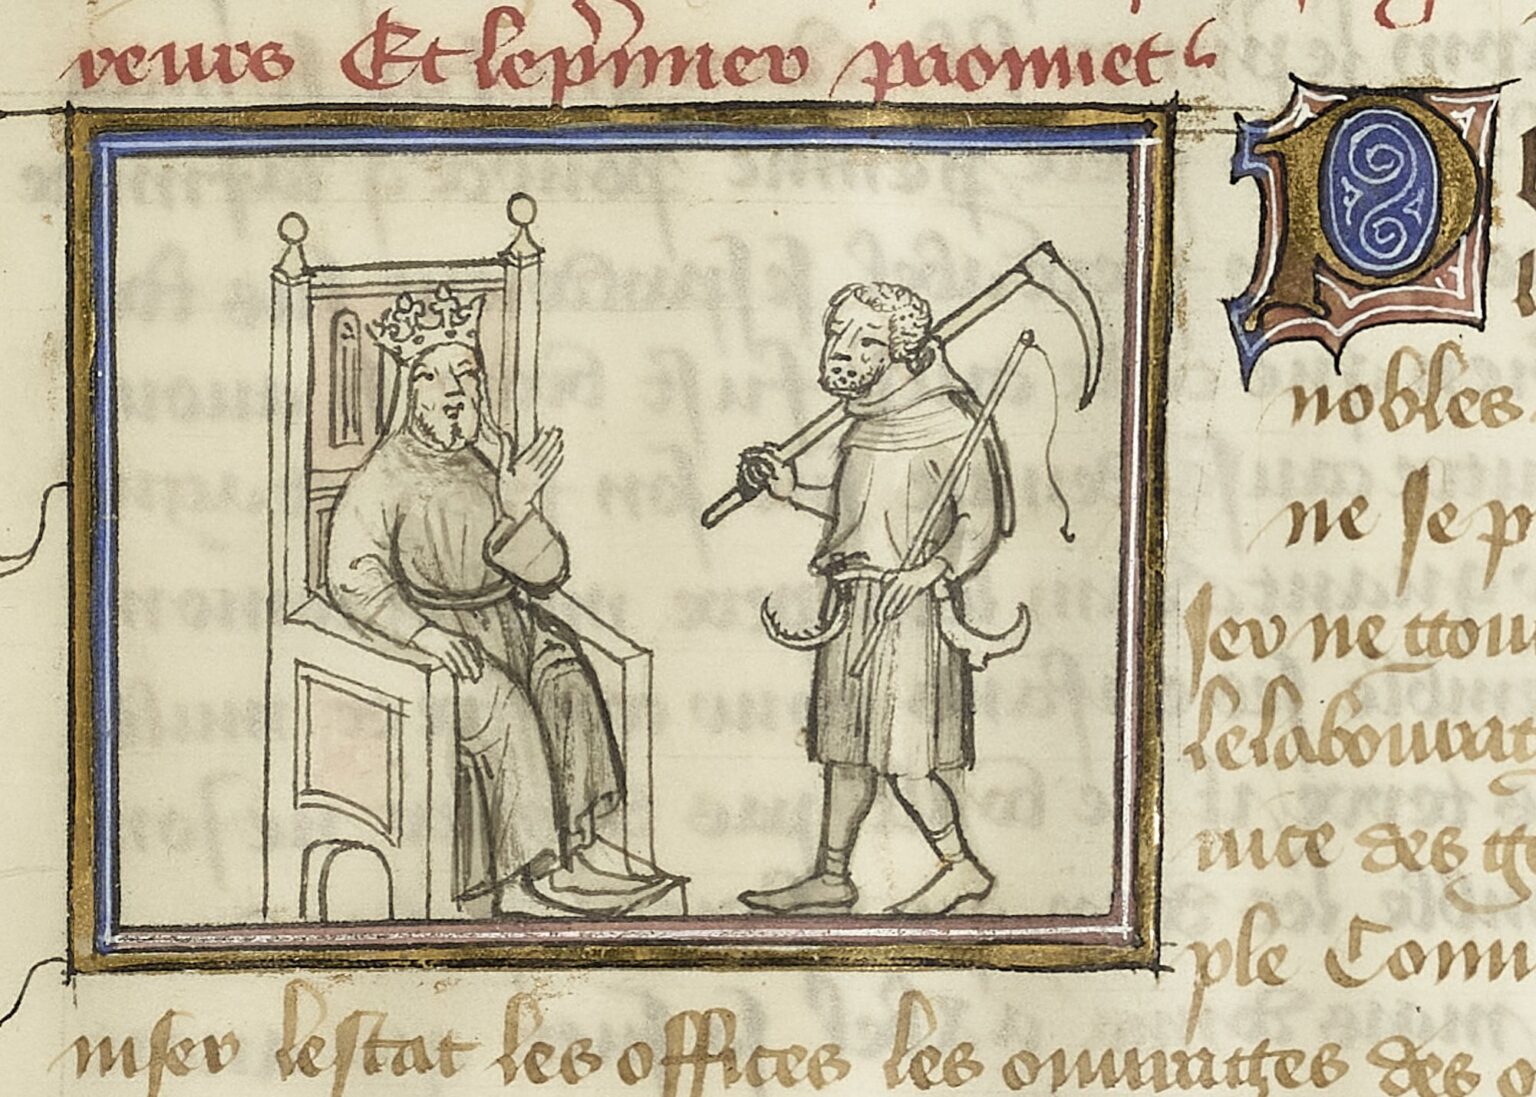 reurs Et le p̃mier paonniet
P
nobles
ne se p
ser ne trou
le labourag
nice des g
ple Comm
mser lestat les offices les ouurages des o